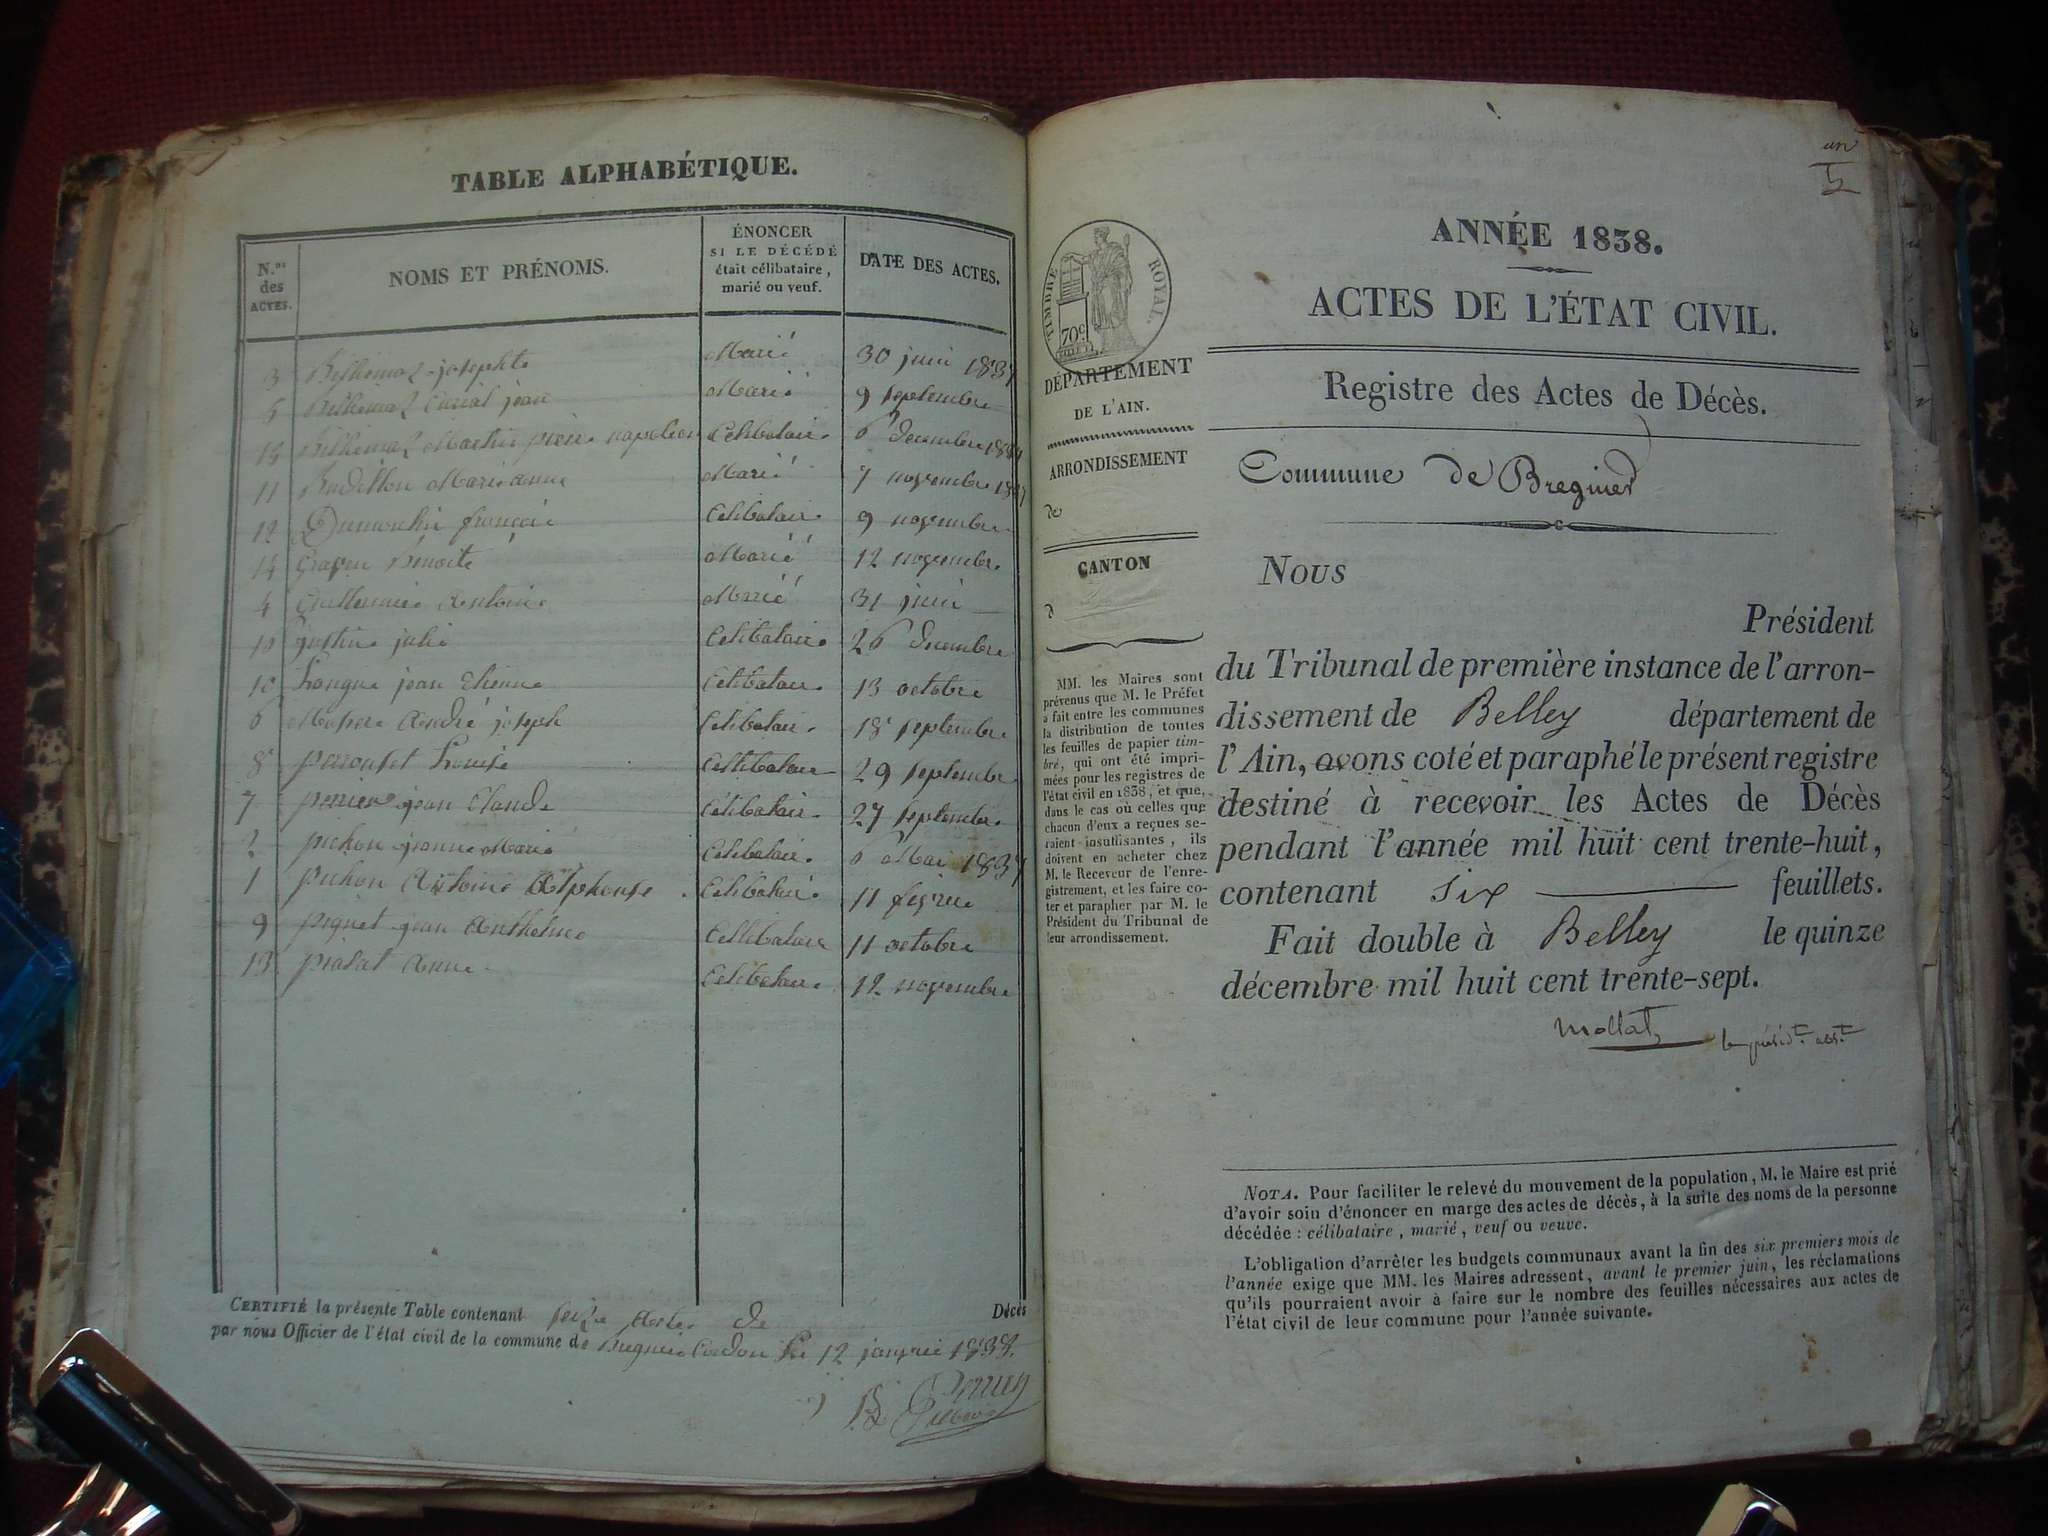 TABLE ALPHABÉTIQUE.
N.os des ACTES.
NOMS ET PRÉNOMS.
ÉNONCER
SI LE DÉCÉDÉ
était célibataire,
marié ou veuf.
DATE DES ACTES.
3 josephte Marié 30 juin 1837
5 jean Marié 9 septembre
pierre napoleon Celibataire 6 decembre
11 Marianne Marié 7 novembre 1837
12 Dumoulin françois Celibataire 9 novembre
14 Benoite Marié 12 novembre
4 Guillermier Antoine Marié 31 juin
justine julie Celibataire 26 decembre
10 jean Etienne Celibataire 13 octobre
6 André joseph Celibataire 18 septembre
8 Louise Celibataire 29 septembre
7 perrier jean Claude Célibataire 27 septembre
2 pichon jeanne Marie Celibataire 6 Mai 1837
1 pichon Antoine Alphonse Celibataire 11
9 piquet jean Anthelme Celibataire 11 octobre
13 Anne Celibataire 12 novembre
CERTIFIÉ la présente Table contenant seize Actes de Décès
par nous Officier de l'état civil de la commune de Bregnier Cordon Le 12 janvier 1838.
un
ANNÉE 1838.
ACTES DE L'ÉTAT CIVIL.
TIMBRE ROYAL.
70c
DÉPARTEMENT
DE L'AIN.
ARRONDISSEMENT
de
CANTON
d
MM. les Maires sont
prévenus que M. le Préfet
a fait entre les communes
la distribution de toutes
les feuilles de papier tim-
bré, qui ont été impri-
mées pour les registres de
l'état civil en 1838, et que,
dans le cas où celles que
chacun d'eux a reçues se-
raient insuffisantes, ils
doivent en acheter chez
M. le Receveur de l'enre-
gistrement, et les faire co-
ter et parapher par M. le
Président du Tribunal de
leur arrondissement.
Registre des Actes de Décès.
Commune de Bregnier
NOUS
Président
du Tribunal de première instance de l'arron-
dissement de Belley département de
l'Ain, avons coté et paraphé le présent registre
destiné à recevoir les Actes de Décès
pendant l'année mil huit cent trente-huit,
contenant six feuillets.
Fait double à Belley le quinze
décembre mil huit cent trente-sept.
Mollat
NOTA. Pour faciliter le relevé du mouvement de la population, M. le Maire est prié
d'avoir soin d'énoncer en marge des actes de décès, à la suite des noms de la personne
décédée : célibataire, marié, veuf ou veuve.
L'obligation d'arrêter les budgets communaux avant la fin des six premiers mois de
l'année exige que MM. les Maires adressent, avant le premier juin, les réclamations
qu'ils pourraient avoir à faire sur le nombre des feuilles nécessaires aux actes de
l'état civil de leur commune pour l'année suivante.